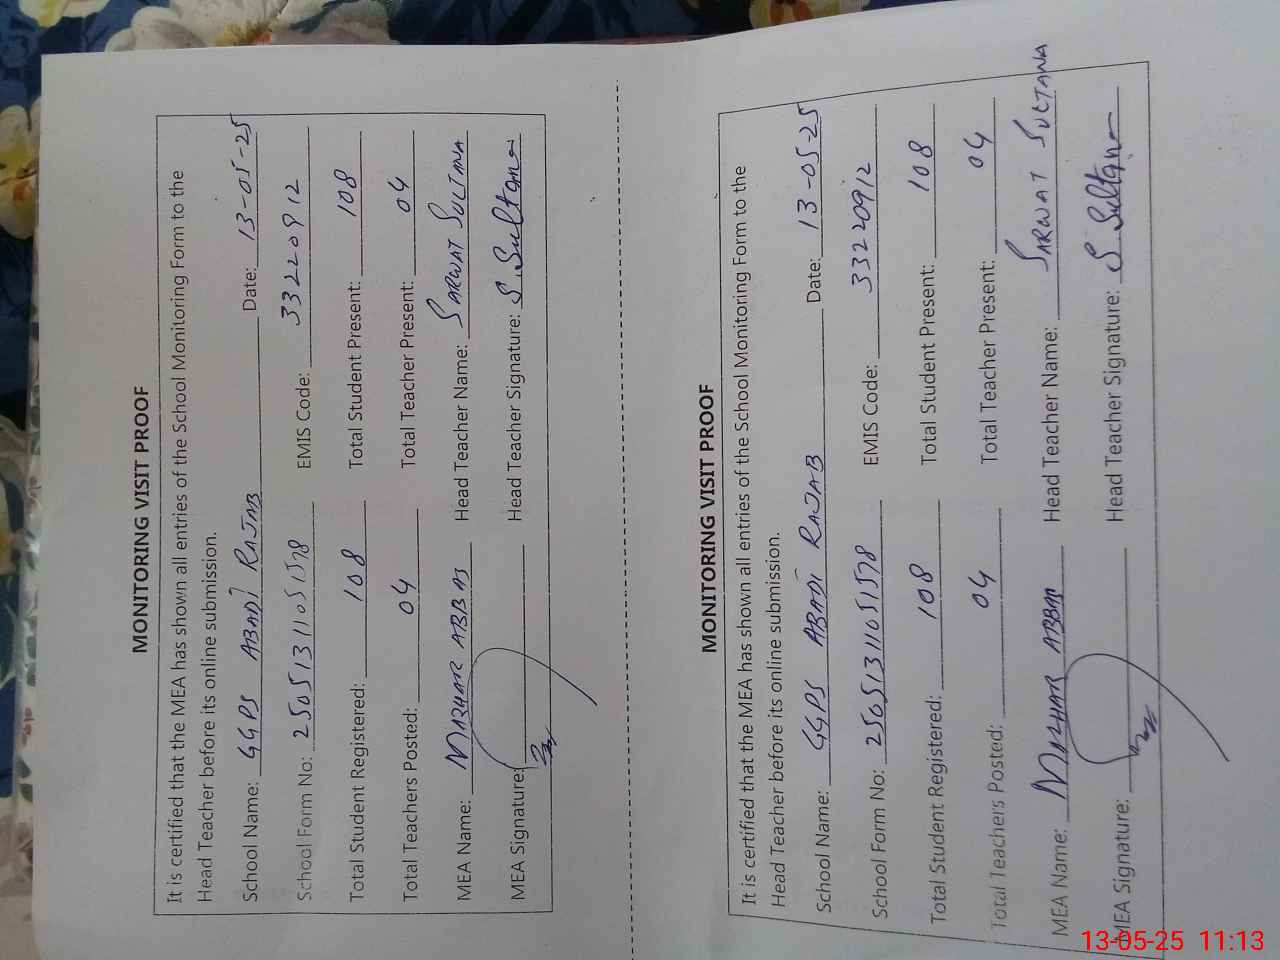 MONITORING VISIT PROOF
It is certified that the MEA has shown all entries of the School Monitoring Form to the
Head Teacher before its online submission.
School Name: GGPS ABADI RAJAB Date: 13-05-25
School Form No: 25051311051578 EMIS Code: 33220912
Total Student Registered: 108 Total Student Present: 108
Total Teachers Posted: 04 Total Teacher Present: 04
MEA Name: MAZHAR ABBAS Head Teacher Name: SARWAT SULTANA
MEA Signature: Head Teacher Signature: S. Sultana
MONITORING VISIT PROOF
It is certified that the MEA has shown all entries of the School Monitoring Form to the
Head Teacher before its online submission.
School Name: GGPS ABADI RAJAB Date: 13-05-25
School Form No: 25051311051578 EMIS Code: 33220912
Total Student Registered: 108 Total Student Present: 108
Total Teachers Posted: 04 Total Teacher Present: 04
MEA Name: MAZHAR ABBAS Head Teacher Name: SARWAT SULTANA
MEA Signature: Head Teacher Signature: S. Sultana
13-05-25 11:13